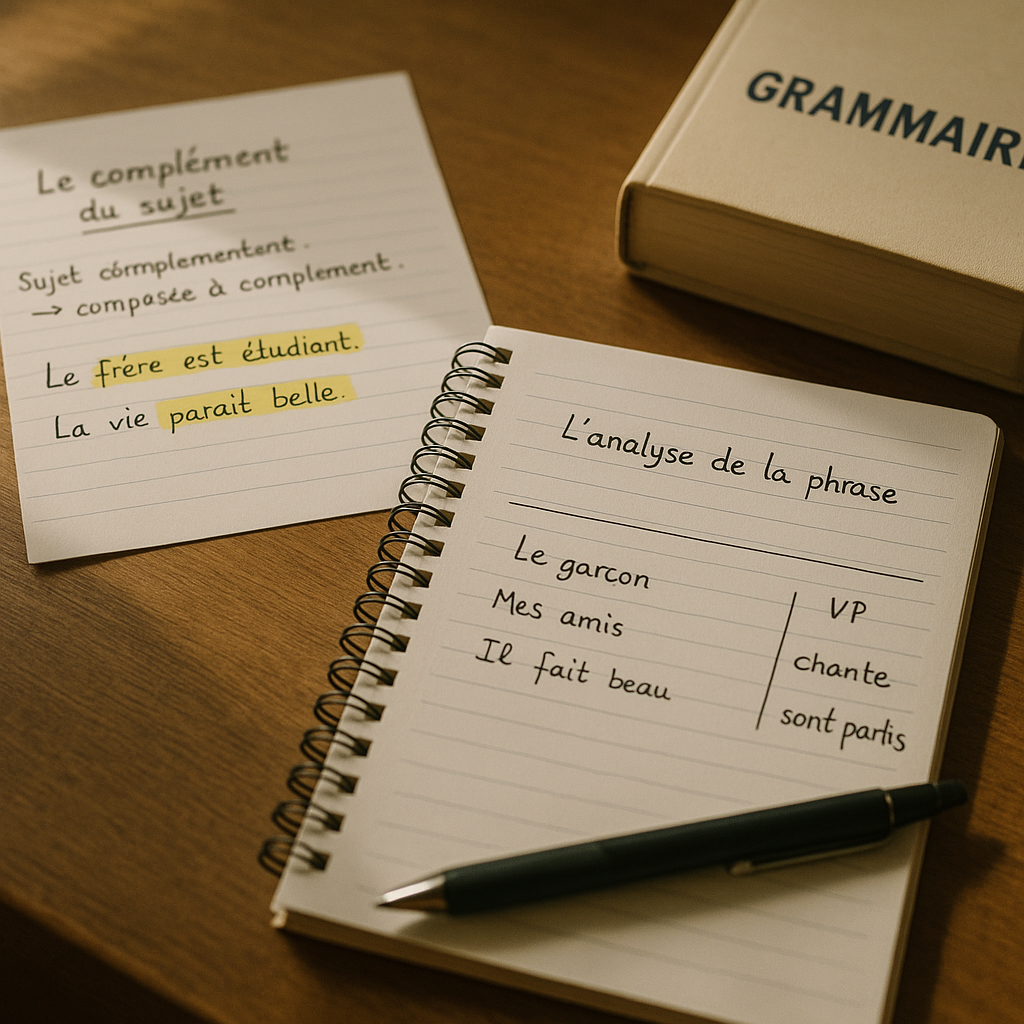 Le complément
du sujet
Sujet córmplementent.
→ compasée à complement.
Le frére est étudiant.
La vie parait belle.
GRAMMAIR
L'analyse de la phrase
Le garcon
VP
Mes amis
chante
Il fait beau
sont partis